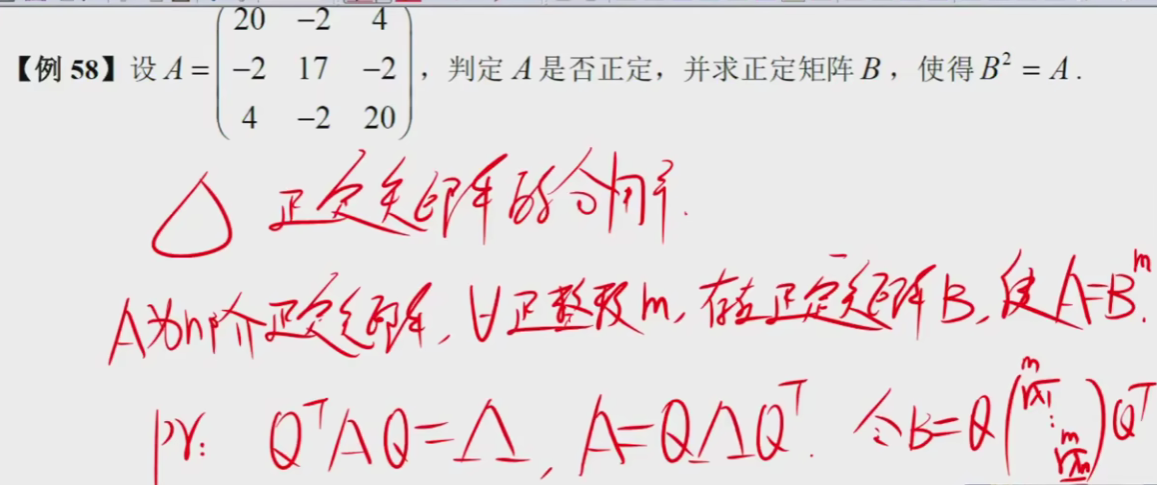 【例 58】设 A = \begin{pmatrix} 20 & -2 & 4 \\ -2 & 17 & -2 \\ 4 & -2 & 20 \end{pmatrix}，判定 A 是否正定，并求正定矩阵 B，使得 B² = A.
△ 正定矩阵的分解.
A为n阶正定矩阵, ∀正整数m, 存在正定矩阵B, 使A=B^m.
pr: Q^TAQ=Λ, A=QΛQ^T. 令B=Q\begin{pmatrix} \sqrt[m]{λ_1} & & \\ & \ddots & \\ & & \sqrt[m]{λ_n} \end{pmatrix}Q^T